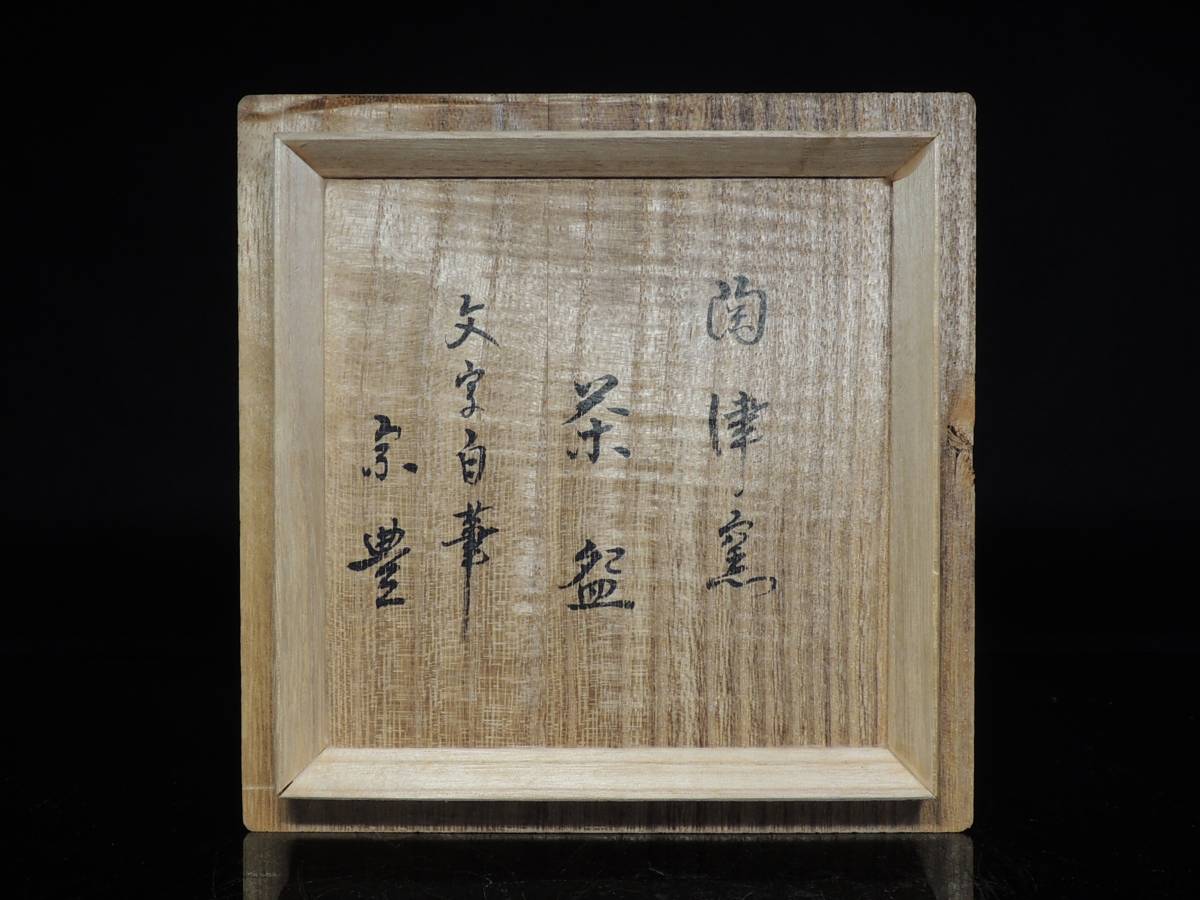 陶津窯
茶盌
文字自筆
宗豊